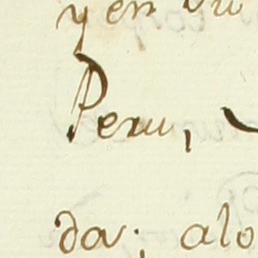 y en su
Peru,
da; alo